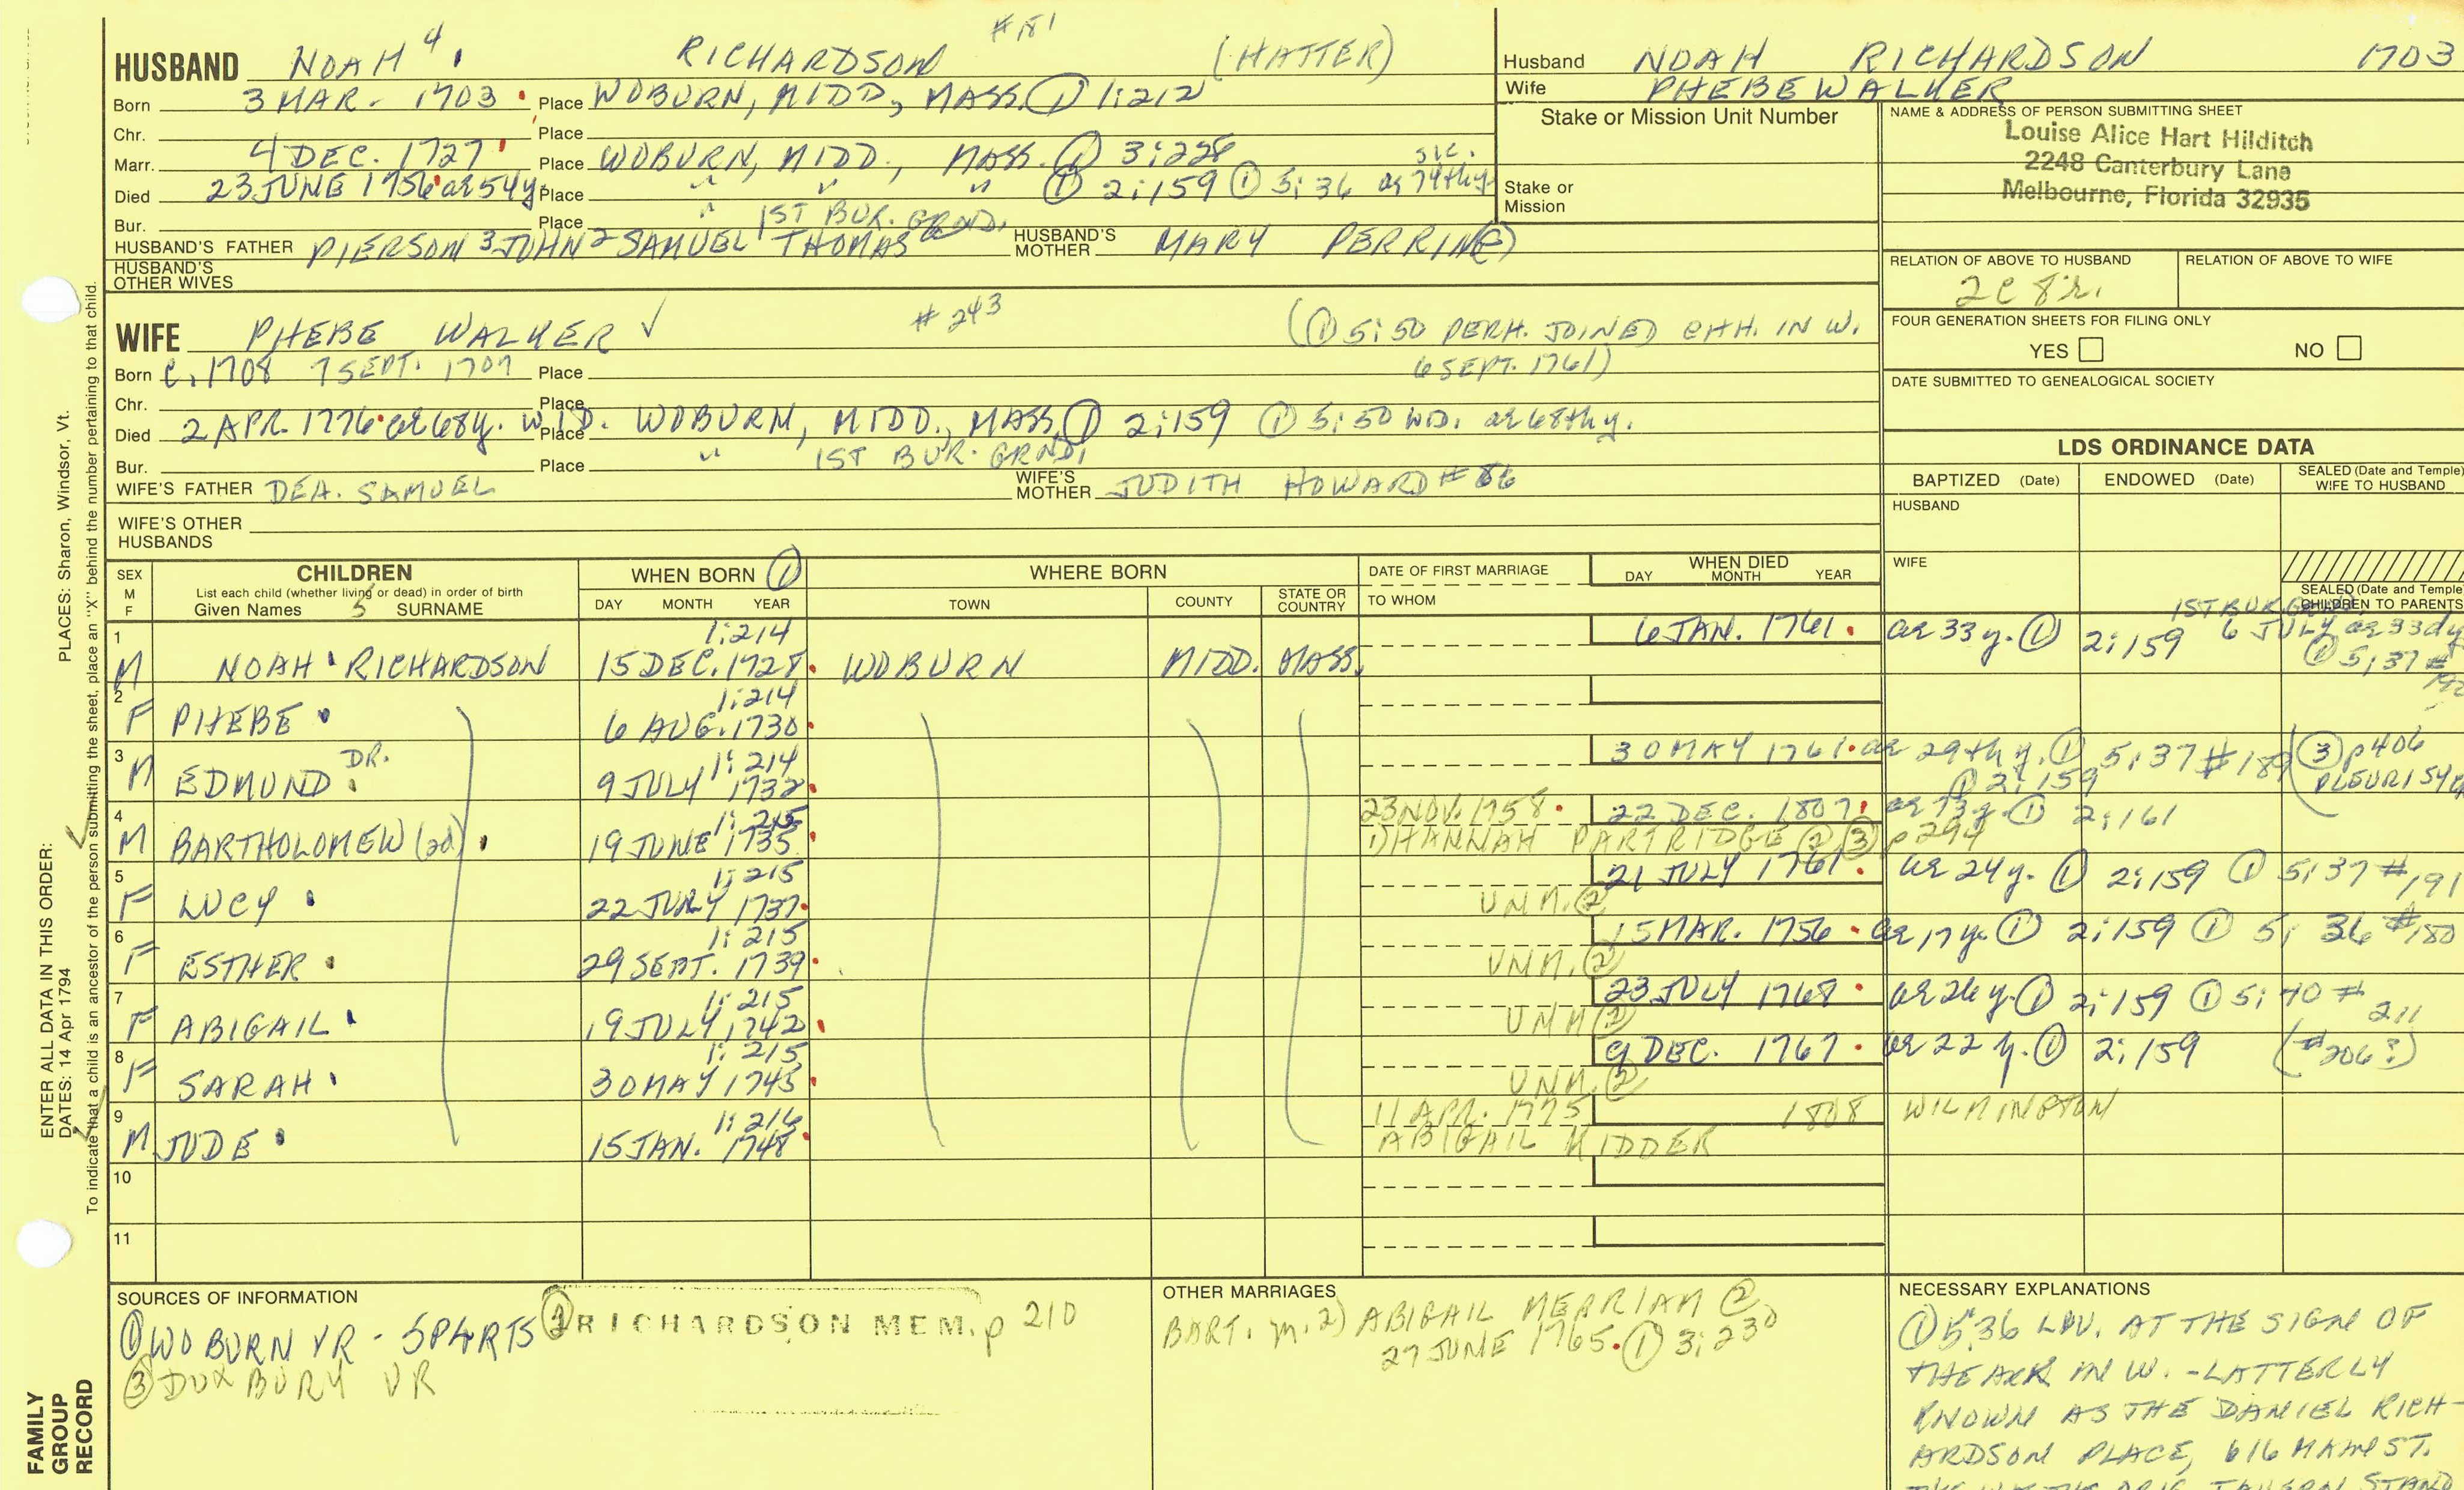 HUSBAND NOAH 4. RICHARDSON #181 (HATTER)
Born 3 MAR. 1703 Place WOBURN, MIDD., MASS. ① 1:212
Chr. Place
Marr. 4 DEC. 1727 Place WOBURN, MIDD., MASS. ① 3:228
Died 23 JUNE 1756 ae 54 y. Place " " " ① 2:159 ① 5:36 ae 74th y. sic.
Bur. Place " 1ST BUR. GRND.
HUSBAND'S FATHER PIERSON 3 JOHN 2 SAMUEL 1 THOMAS HUSBAND'S MOTHER MARY PERRIN(E)
HUSBAND'S OTHER WIVES
WIFE PHEBE WALKER √ #243 (① 5:50 PERH. JOINED CHH. IN W.
6 SEPT. 1761)
Born C. 1708 7 SEPT. 1707 Place
Chr. Place
Died 2 APR. 1776 ae 68 y. WID. Place WOBURN, MIDD., MASS. ① 2:159 ① 5:50 WD. ae 68th y.
Bur. Place " 1ST BUR. GRND.
WIFE'S FATHER DEA. SAMUEL WIFE'S MOTHER JUDITH HOWARD #86
WIFE'S OTHER HUSBANDS
Husband NOAH RICHARDSON 1703
Wife PHEBE WALKER
Stake or Mission Unit Number
Stake or Mission
NAME & ADDRESS OF PERSON SUBMITTING SHEET
Louise Alice Hart Hilditch
2248 Canterbury Lane
Melbourne, Florida 32935
RELATION OF ABOVE TO HUSBAND RELATION OF ABOVE TO WIFE
2C 8r.
FOUR GENERATION SHEETS FOR FILING ONLY
YES NO
DATE SUBMITTED TO GENEALOGICAL SOCIETY
LDS ORDINANCE DATA
BAPTIZED (Date) ENDOWED (Date) SEALED (Date and Temple) WIFE TO HUSBAND
HUSBAND
WIFE
SEALED (Date and Temple) CHILDREN TO PARENTS
SEX M F
CHILDREN
List each child (whether living or dead) in order of birth
Given Names 5 SURNAME
WHEN BORN ①
DAY MONTH YEAR
WHERE BORN
TOWN COUNTY STATE OR COUNTRY
DATE OF FIRST MARRIAGE
TO WHOM
WHEN DIED
DAY MONTH YEAR
1 M NOAH RICHARDSON 1:214 15 DEC. 1728 WOBURN MIDD. MASS. 6 JAN. 1761 ae 33 y. ① 2:159 1ST BUR. GRND. 6 JULY ae 33d y ① 5:37 #
2 F PHEBE 1:214 6 AUG. 1730
3 M EDMUND DR. 1:214 9 JULY 1732 30 MAY 1761 ae 29th y. ① 5:37 ① 2:159 ③ p 406 PLEURISY
4 M BARTHOLOMEW (2d) 1:215 19 JUNE 1735 23 NOV. 1758 22 DEC. 1807 ae 73 y. ① 2:161
1) HANNAH PARTRIDGE ② ③ p 294
5 F LUCY 1:215 22 JULY 1737 UNM. ② 21 JULY 1761 ae 24 y. ① 2:159 ① 5:37 #191
6 F ESTHER 1:215 29 SEPT. 1739 UNM. ② 15 MAR. 1756 ae 17 y. ① 2:159 ① 5:36 #180
7 F ABIGAIL 1:215 19 JULY 1742 UNM ② 23 JULY 1768 ae 26 y. ① 2:159 ① 5:40 #211
8 F SARAH 1:215 30 MAY 1745 UNM. ② 9 DEC. 1767 ae 22 y. ① 2:159 (#206?)
9 M JUDE 1:216 15 JAN. 1748 11 APR. 1775 1808 WILMINGTON
ABIGAIL KIDDER
10
11
SOURCES OF INFORMATION
① WOBURN VR - 5 PARTS ② RICHARDSON MEM. p 210
③ DUXBURY VR
OTHER MARRIAGES
BART. m. 2) ABIGAIL MERRIAM ②
27 JUNE 1765. ① 3:230
NECESSARY EXPLANATIONS
① 5:36 LIV. AT THE SIGN OF
THE ARK IN W. - LATTERLY
KNOWN AS THE DANIEL RICH-
ARDSON PLACE, 616 MAIN ST.
ENTER ALL DATA IN THIS ORDER:
PLACES: Sharon, Windsor, Vt.
DATES: 14 Apr 1794
To indicate that a child is an ancestor of the person submitting the sheet, place an "X" behind the number pertaining to that child.
FAMILY GROUP RECORD